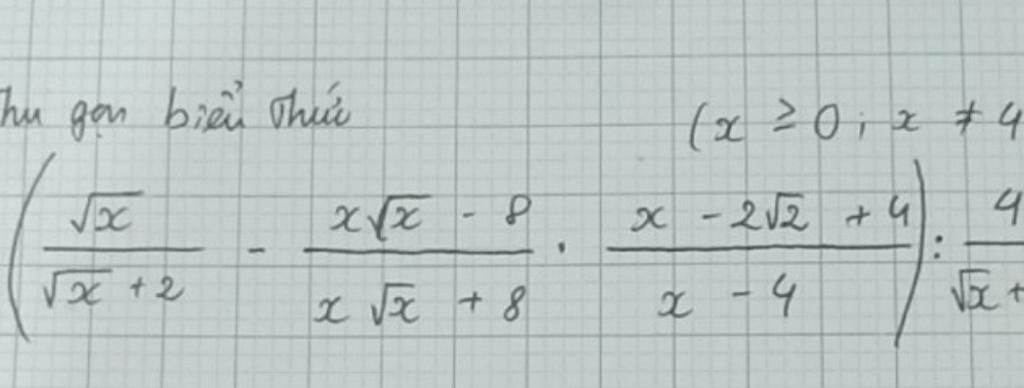 hu gọn biểu thức (x ≥ 0; x ≠ 4
(√x / (√x + 2) - (x√x - 8) / (x√x + 8) · (x - 2√2 + 4) / (x - 4)) : 4 / (√x +